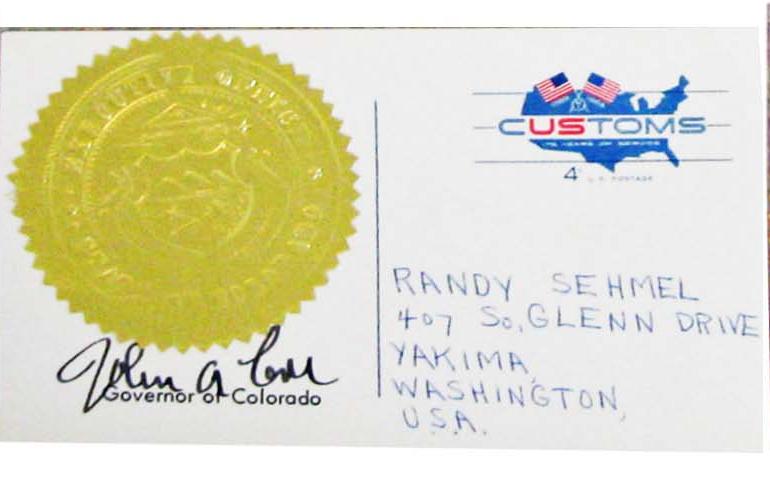 CUSTOMS
175 YEARS OF SERVICE
4¢ U.S. POSTAGE
John A Love
Governor of Colorado
RANDY SEHMEL
407 So. GLENN DRIVE
YAKIMA,
WASHINGTON,
U.S.A.